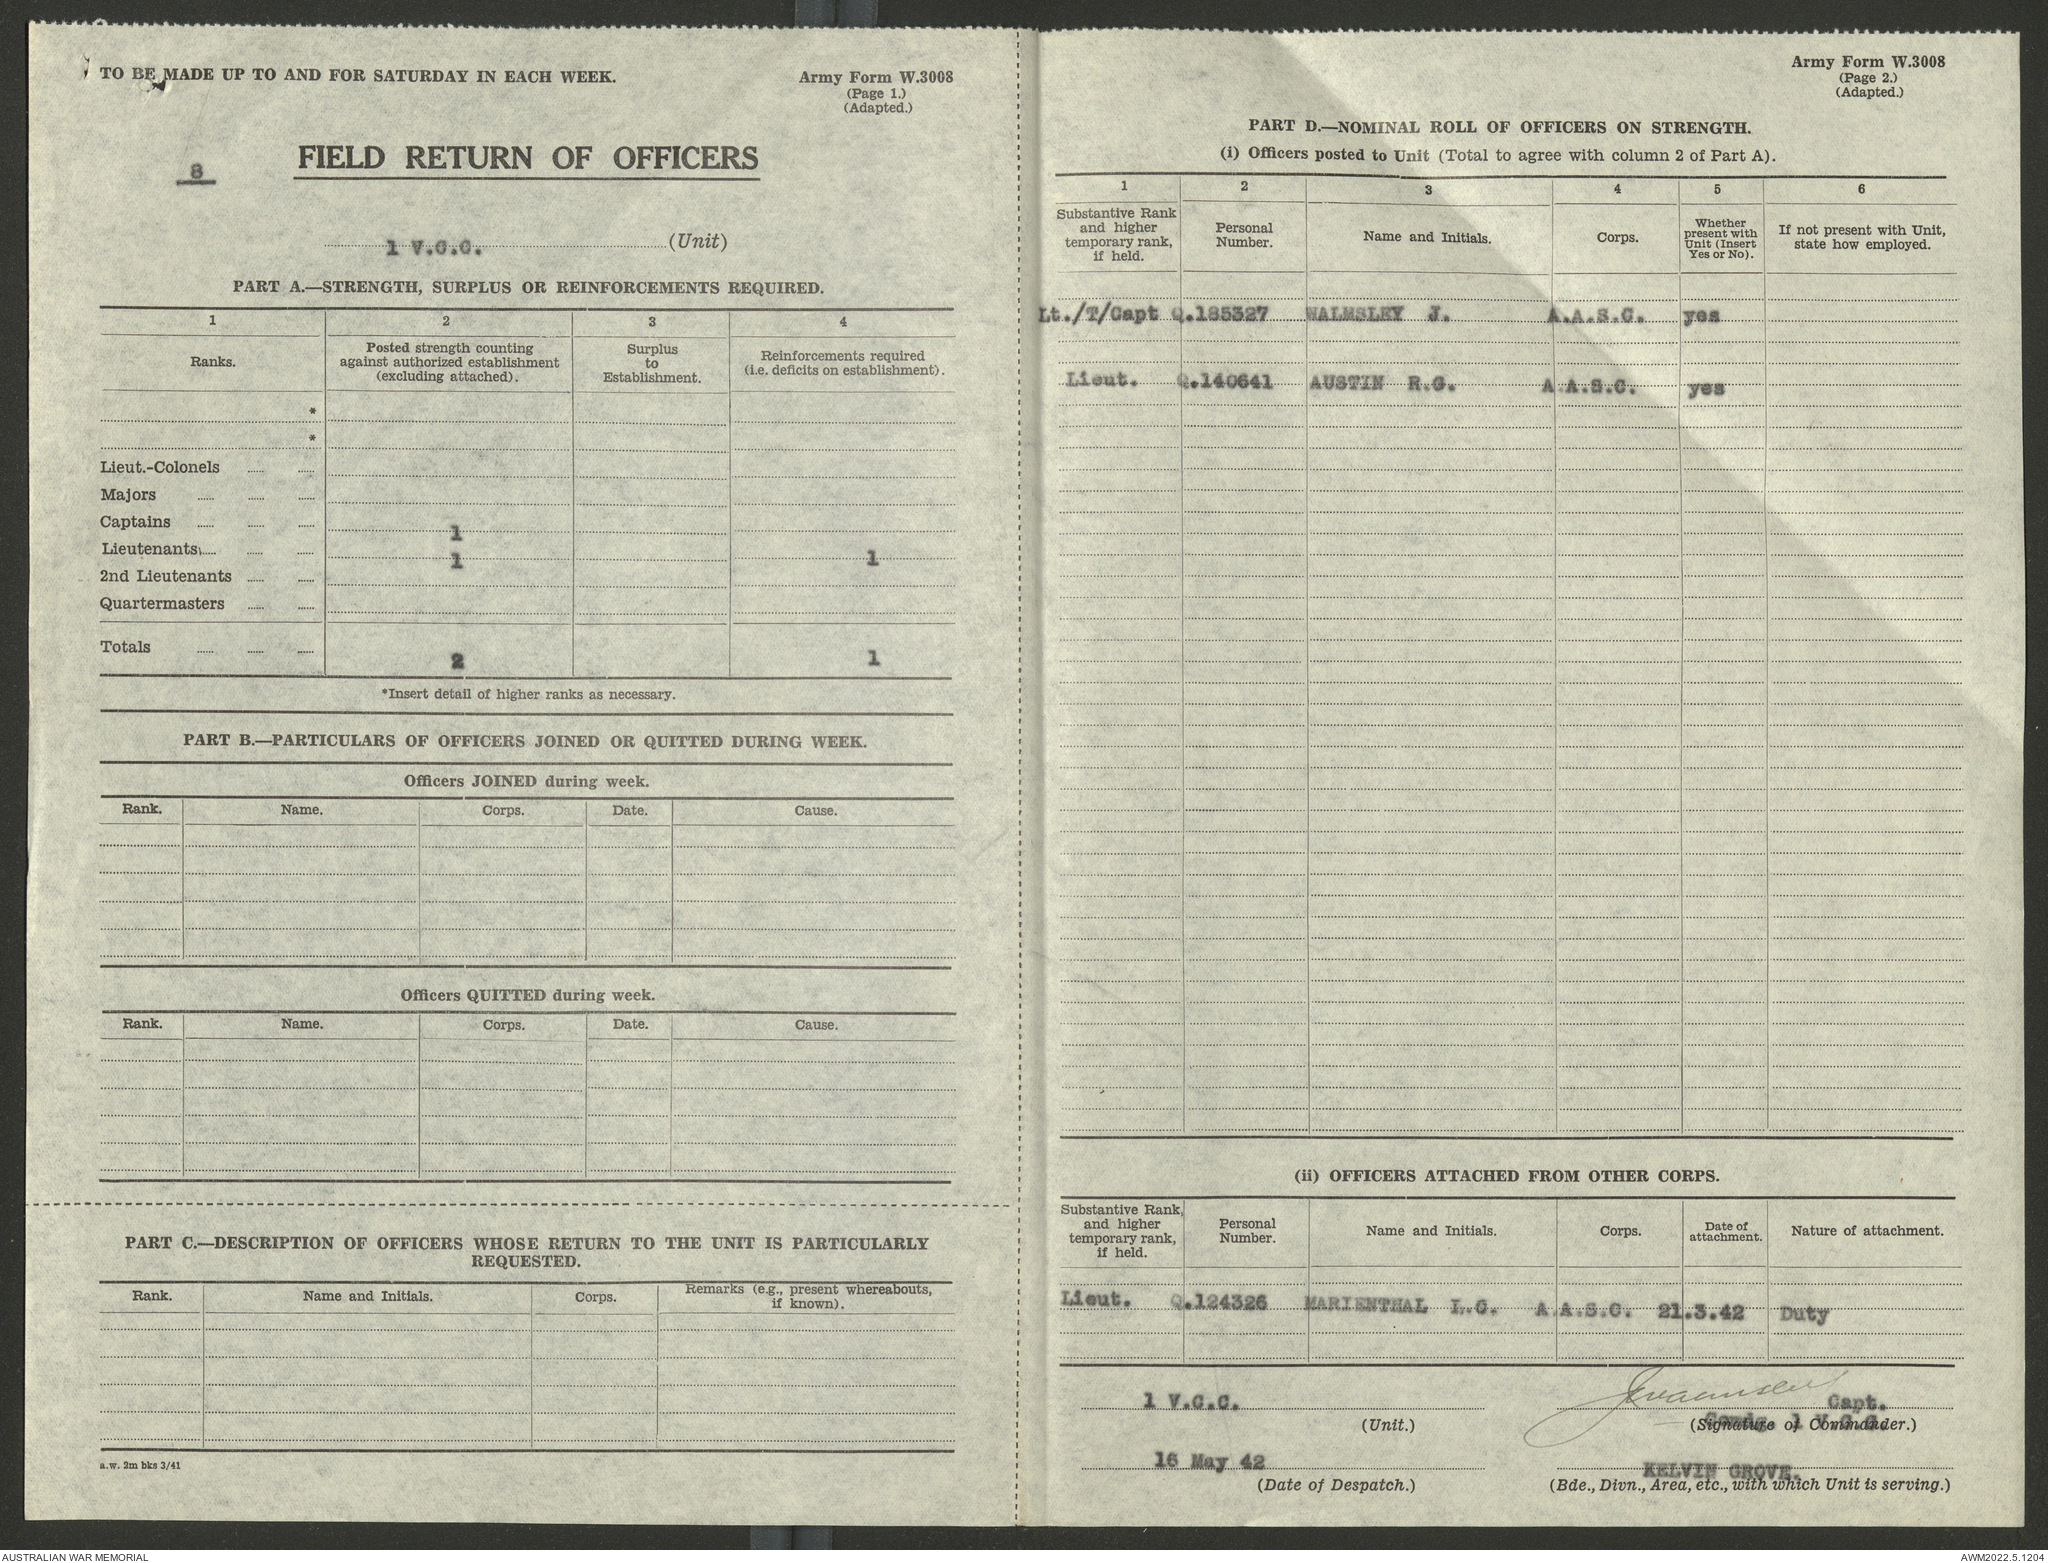 TO BE MADE UP TO AND FOR SATURDAY IN EACH WEEK.
Army Form W.3008
(Page 1.)
(Adapted.)
8
FIELD RETURN OF OFFICERS
1 V.C.C. (Unit)
PART A.—STRENGTH, SURPLUS OR REINFORCEMENTS REQUIRED.
1 2 3 4
Ranks. Posted strength counting against authorized establishment (excluding attached). Surplus to Establishment. Reinforcements required (i.e. deficits on establishment).
*
*
Lieut.-Colonels
Majors
Captains 1
Lieutenants 1 1
2nd Lieutenants
Quartermasters
Totals 2 1
*Insert detail of higher ranks as necessary.
PART B.—PARTICULARS OF OFFICERS JOINED OR QUITTED DURING WEEK.
Officers JOINED during week.
Rank. Name. Corps. Date. Cause.
Officers QUITTED during week.
Rank. Name. Corps. Date. Cause.
PART C.—DESCRIPTION OF OFFICERS WHOSE RETURN TO THE UNIT IS PARTICULARLY
REQUESTED.
Rank. Name and Initials. Corps. Remarks (e.g., present whereabouts, if known).
a.w. 2m bks 3/41
Army Form W.3008
(Page 2.)
(Adapted.)
PART D.—NOMINAL ROLL OF OFFICERS ON STRENGTH.
(i) Officers posted to Unit (Total to agree with column 2 of Part A).
1 2 3 4 5 6
Substantive Rank and higher temporary rank, if held. Personal Number. Name and Initials. Corps. Whether present with Unit (Insert Yes or No). If not present with Unit, state how employed.
Lt./T/Capt Q.185327 WALMSLEY J. A.A.S.C. yes
Lieut. Q.140641 AUSTIN R.G. A.A.S.C. yes
(ii) OFFICERS ATTACHED FROM OTHER CORPS.
Substantive Rank, and higher temporary rank, if held. Personal Number. Name and Initials. Corps. Date of attachment. Nature of attachment.
Lieut. Q.124326 MARIENTHAL L.G. A.A.S.C. 21.3.42 Duty
1 V.C.C. Capt.
(Unit.) (Signature of Commander.)
16 May 42 KELVIN GROVE.
(Date of Despatch.) (Bde., Divn., Area, etc., with which Unit is serving.)
AUSTRALIAN WAR MEMORIAL
AWM2022.5.1204